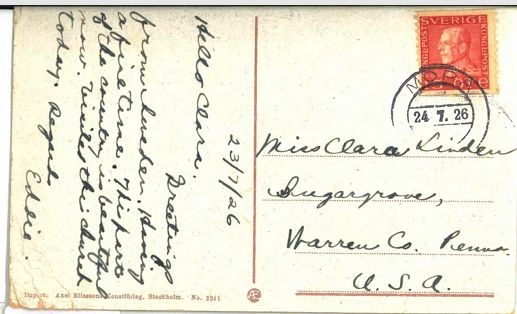 23/7/26
Hello Clara,
Greetings
from Sweden. Having
a fine time. This part
of the country is beautiful
now. Visited this church
today. Regards
Eddie.
SVERIGE
KUNGL·POST
KUNGL·POST
MORA
24. 7. 26
Miss Clara Linden
Sugargrove,
Warren Co. Penna.
U. S. A.
Import. Axel Eliassons Konstförlag, Stockholm. No. 2241
AE